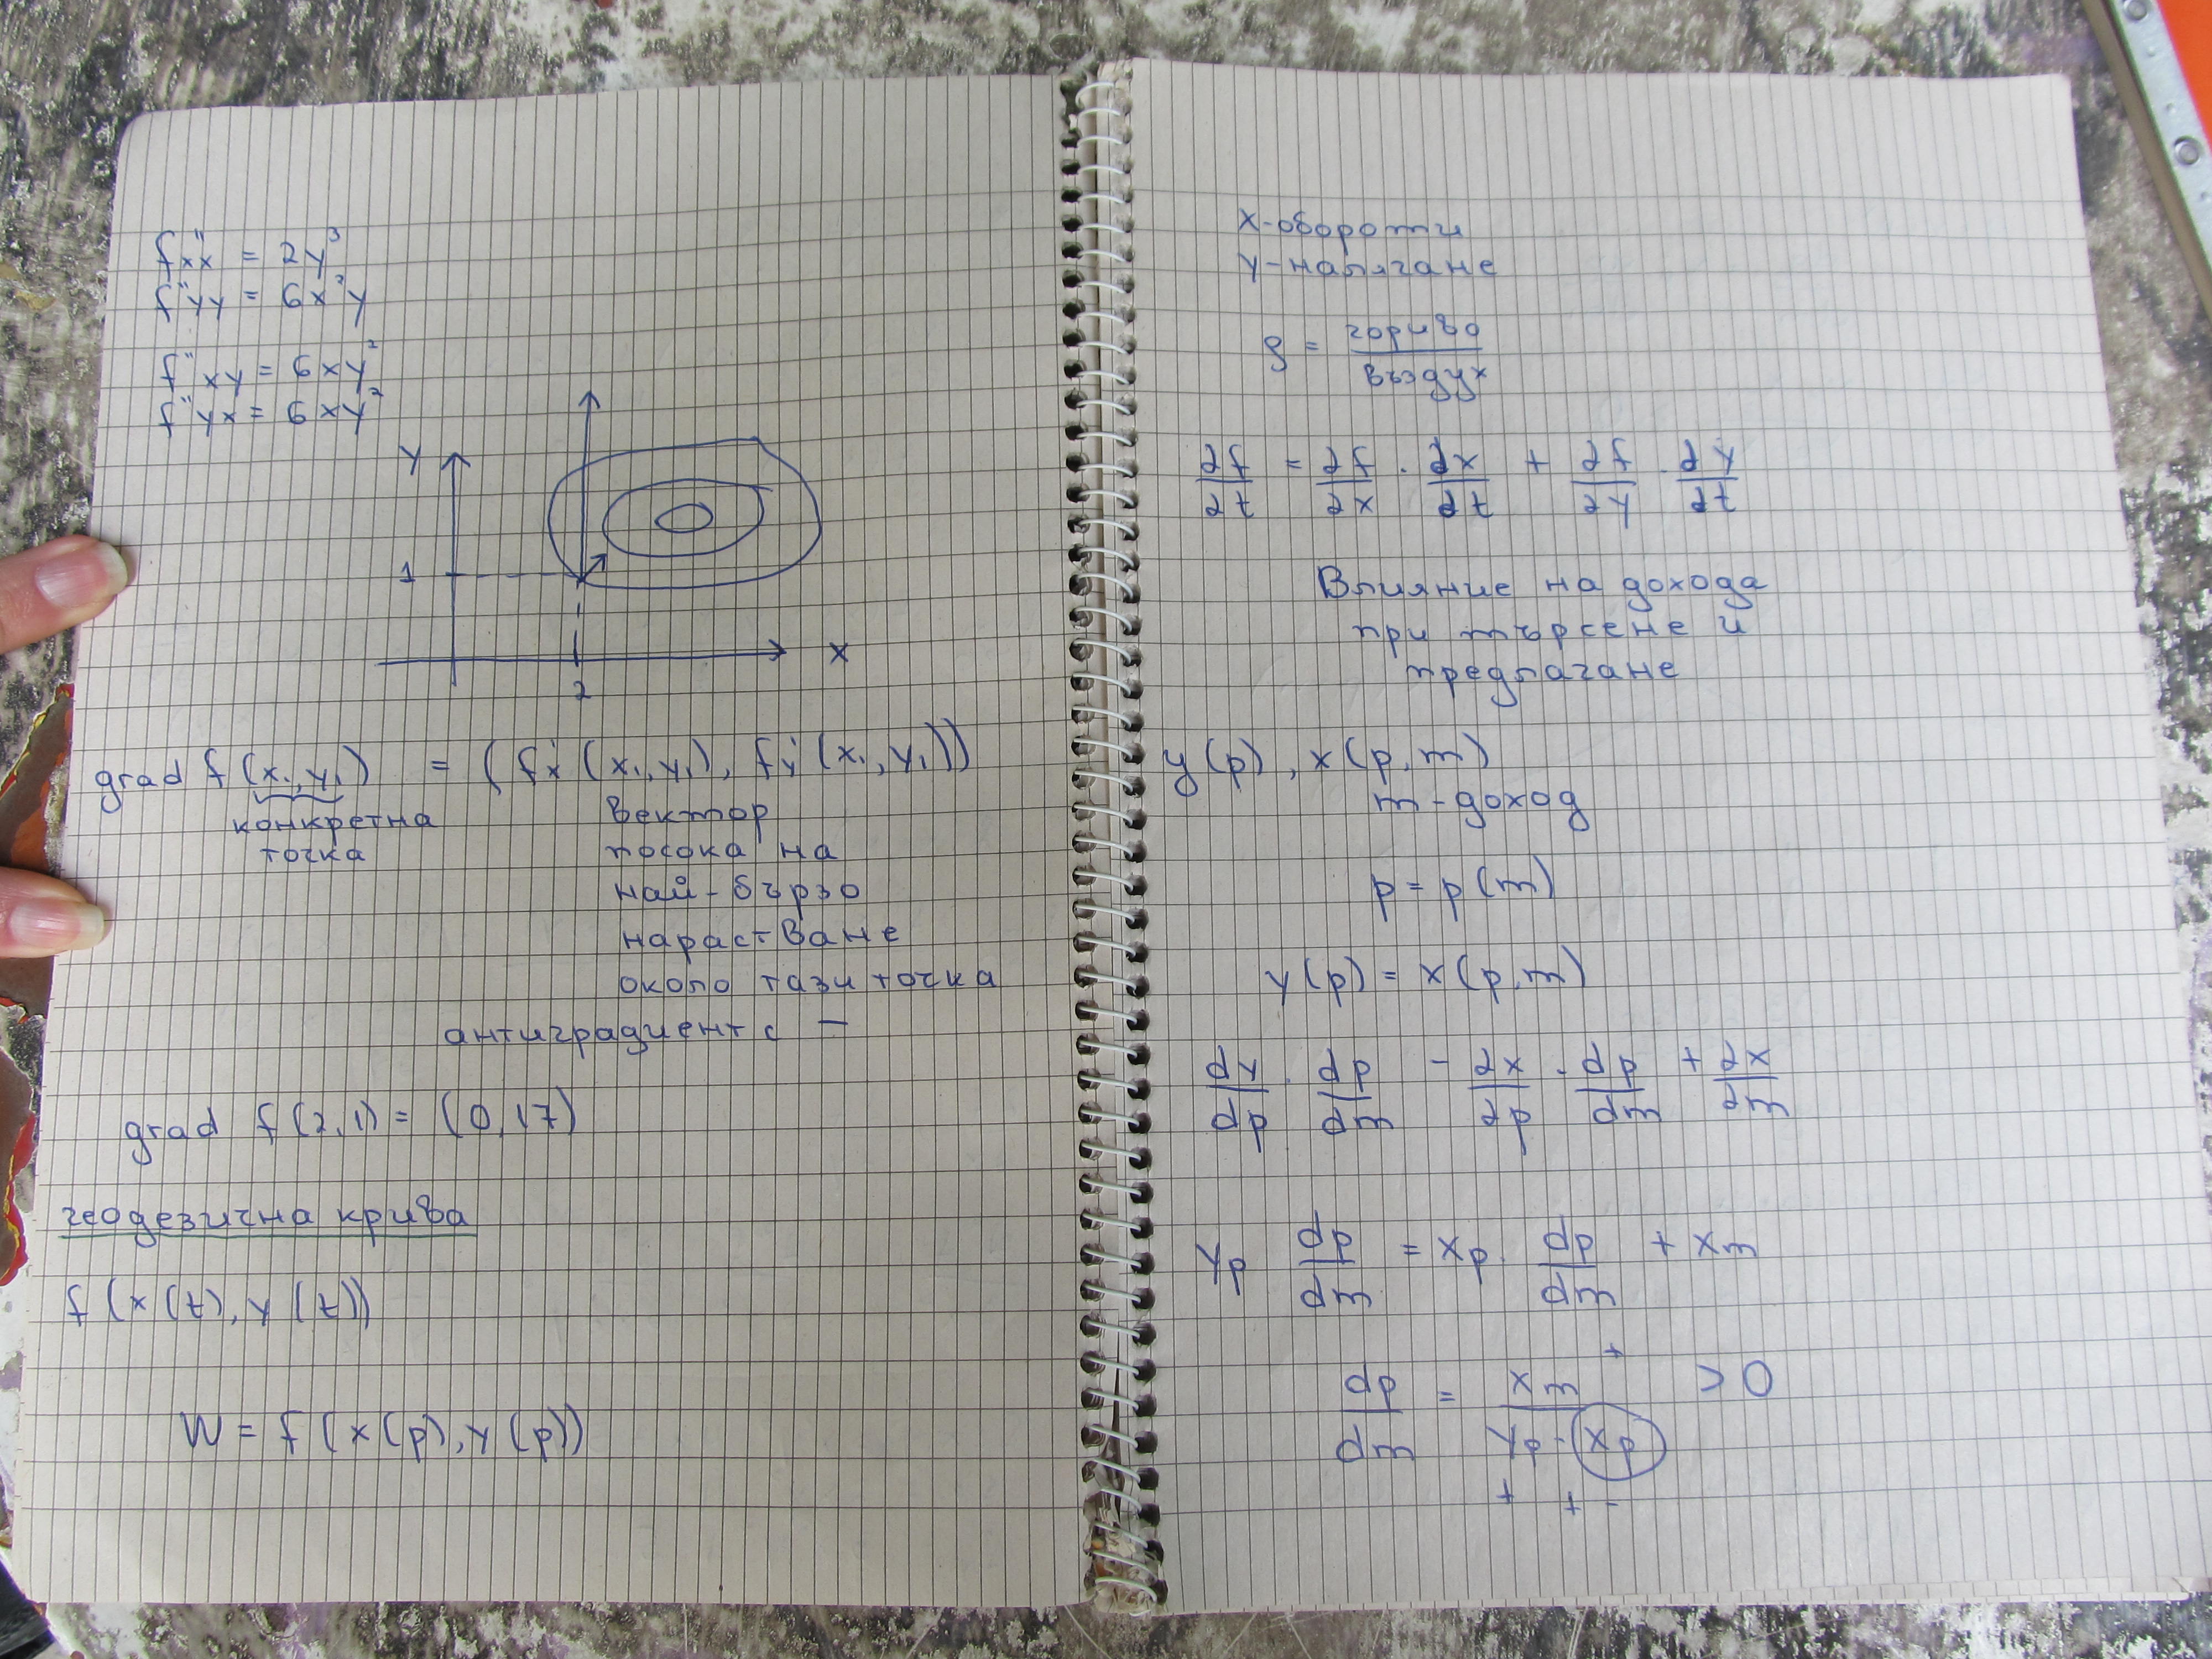 fxx'' = 2y³
f''yy = 6x²y
f''xy = 6xy²
f''yx = 6xy²
y
1
x
2
grad f(x₁,y₁) = (fx'(x₁,y₁), fy'(x₁,y₁))
конкретна
точка
вектор
посока на
най-бързо
нарастване
около тази точка
антиградиент с −
grad f(2,1) = (0,17)
геодезична крива
f(x(t), y(t))
W = f(x(p), y(p))
x-обороти
y-налягане
ρ = гориво / въздух
∂f/∂t = ∂f/∂x · ∂x/∂t + ∂f/∂y · ∂y/∂t
Влияние на дохода
при търсене и
предлагане
y(p), x(p,m)
m-доход
p = p(m)
y(p) = x(p,m)
dy/dp · dp/dm − ∂x/∂p · dp/dm + ∂x/∂m
yp dp/dm = xp · dp/dm + xm
+
dp/dm = xm / yp - xp > 0
+ + -